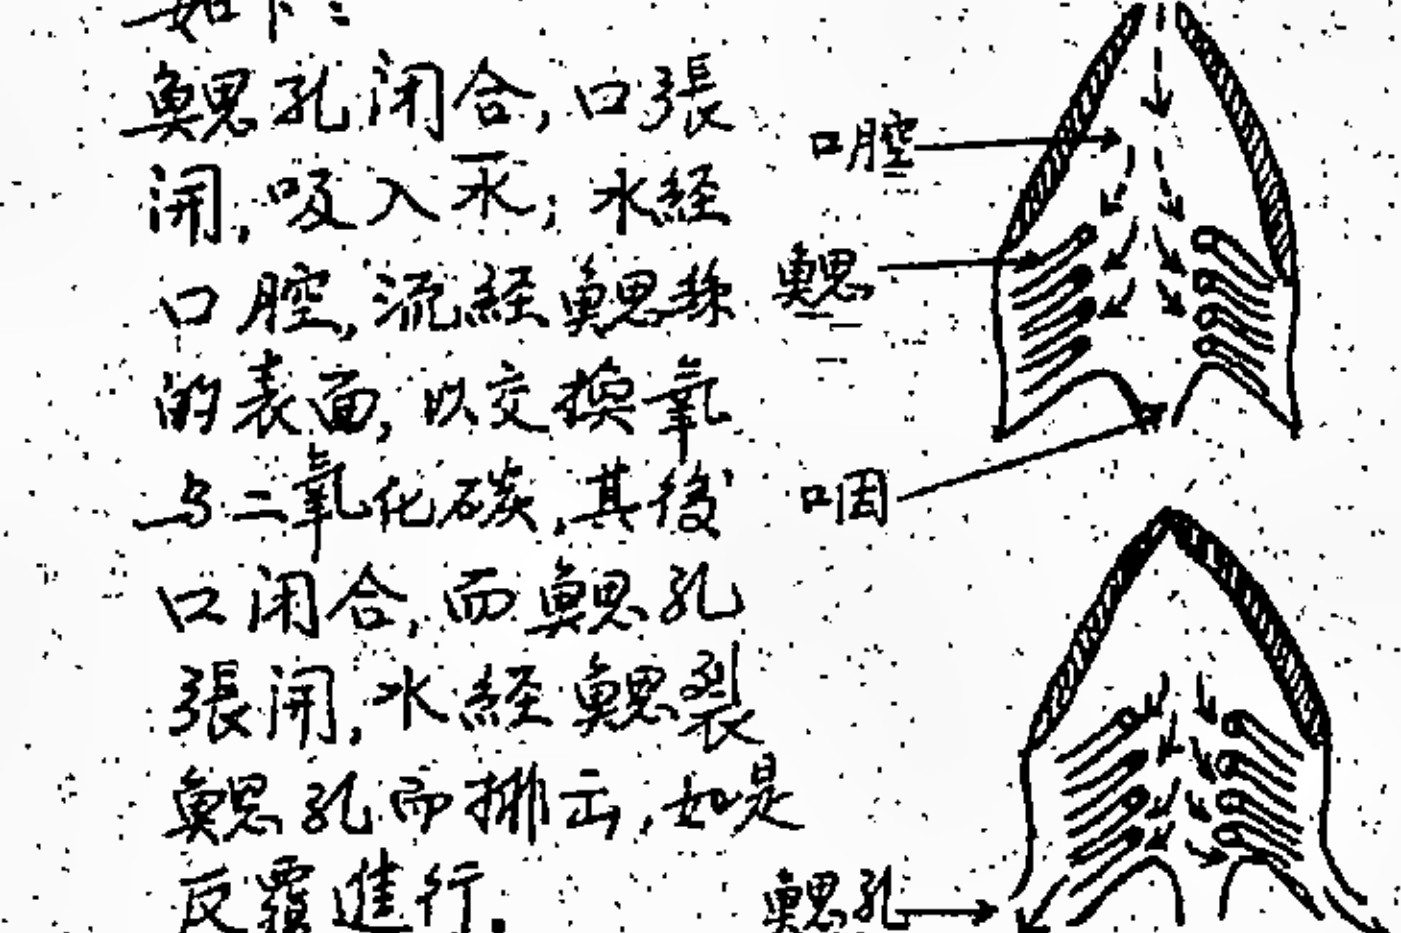 如下:
鰓孔闭合,口張
開,吸入水;水経
口腔,流経鰓絲
的表面,以交換氧
与二氧化碳,其後
口闭合,而鰓孔
張開,水経鰓裂
鰓孔而排出,如是
反覆進行.
口腔
鰓
咽
鰓孔